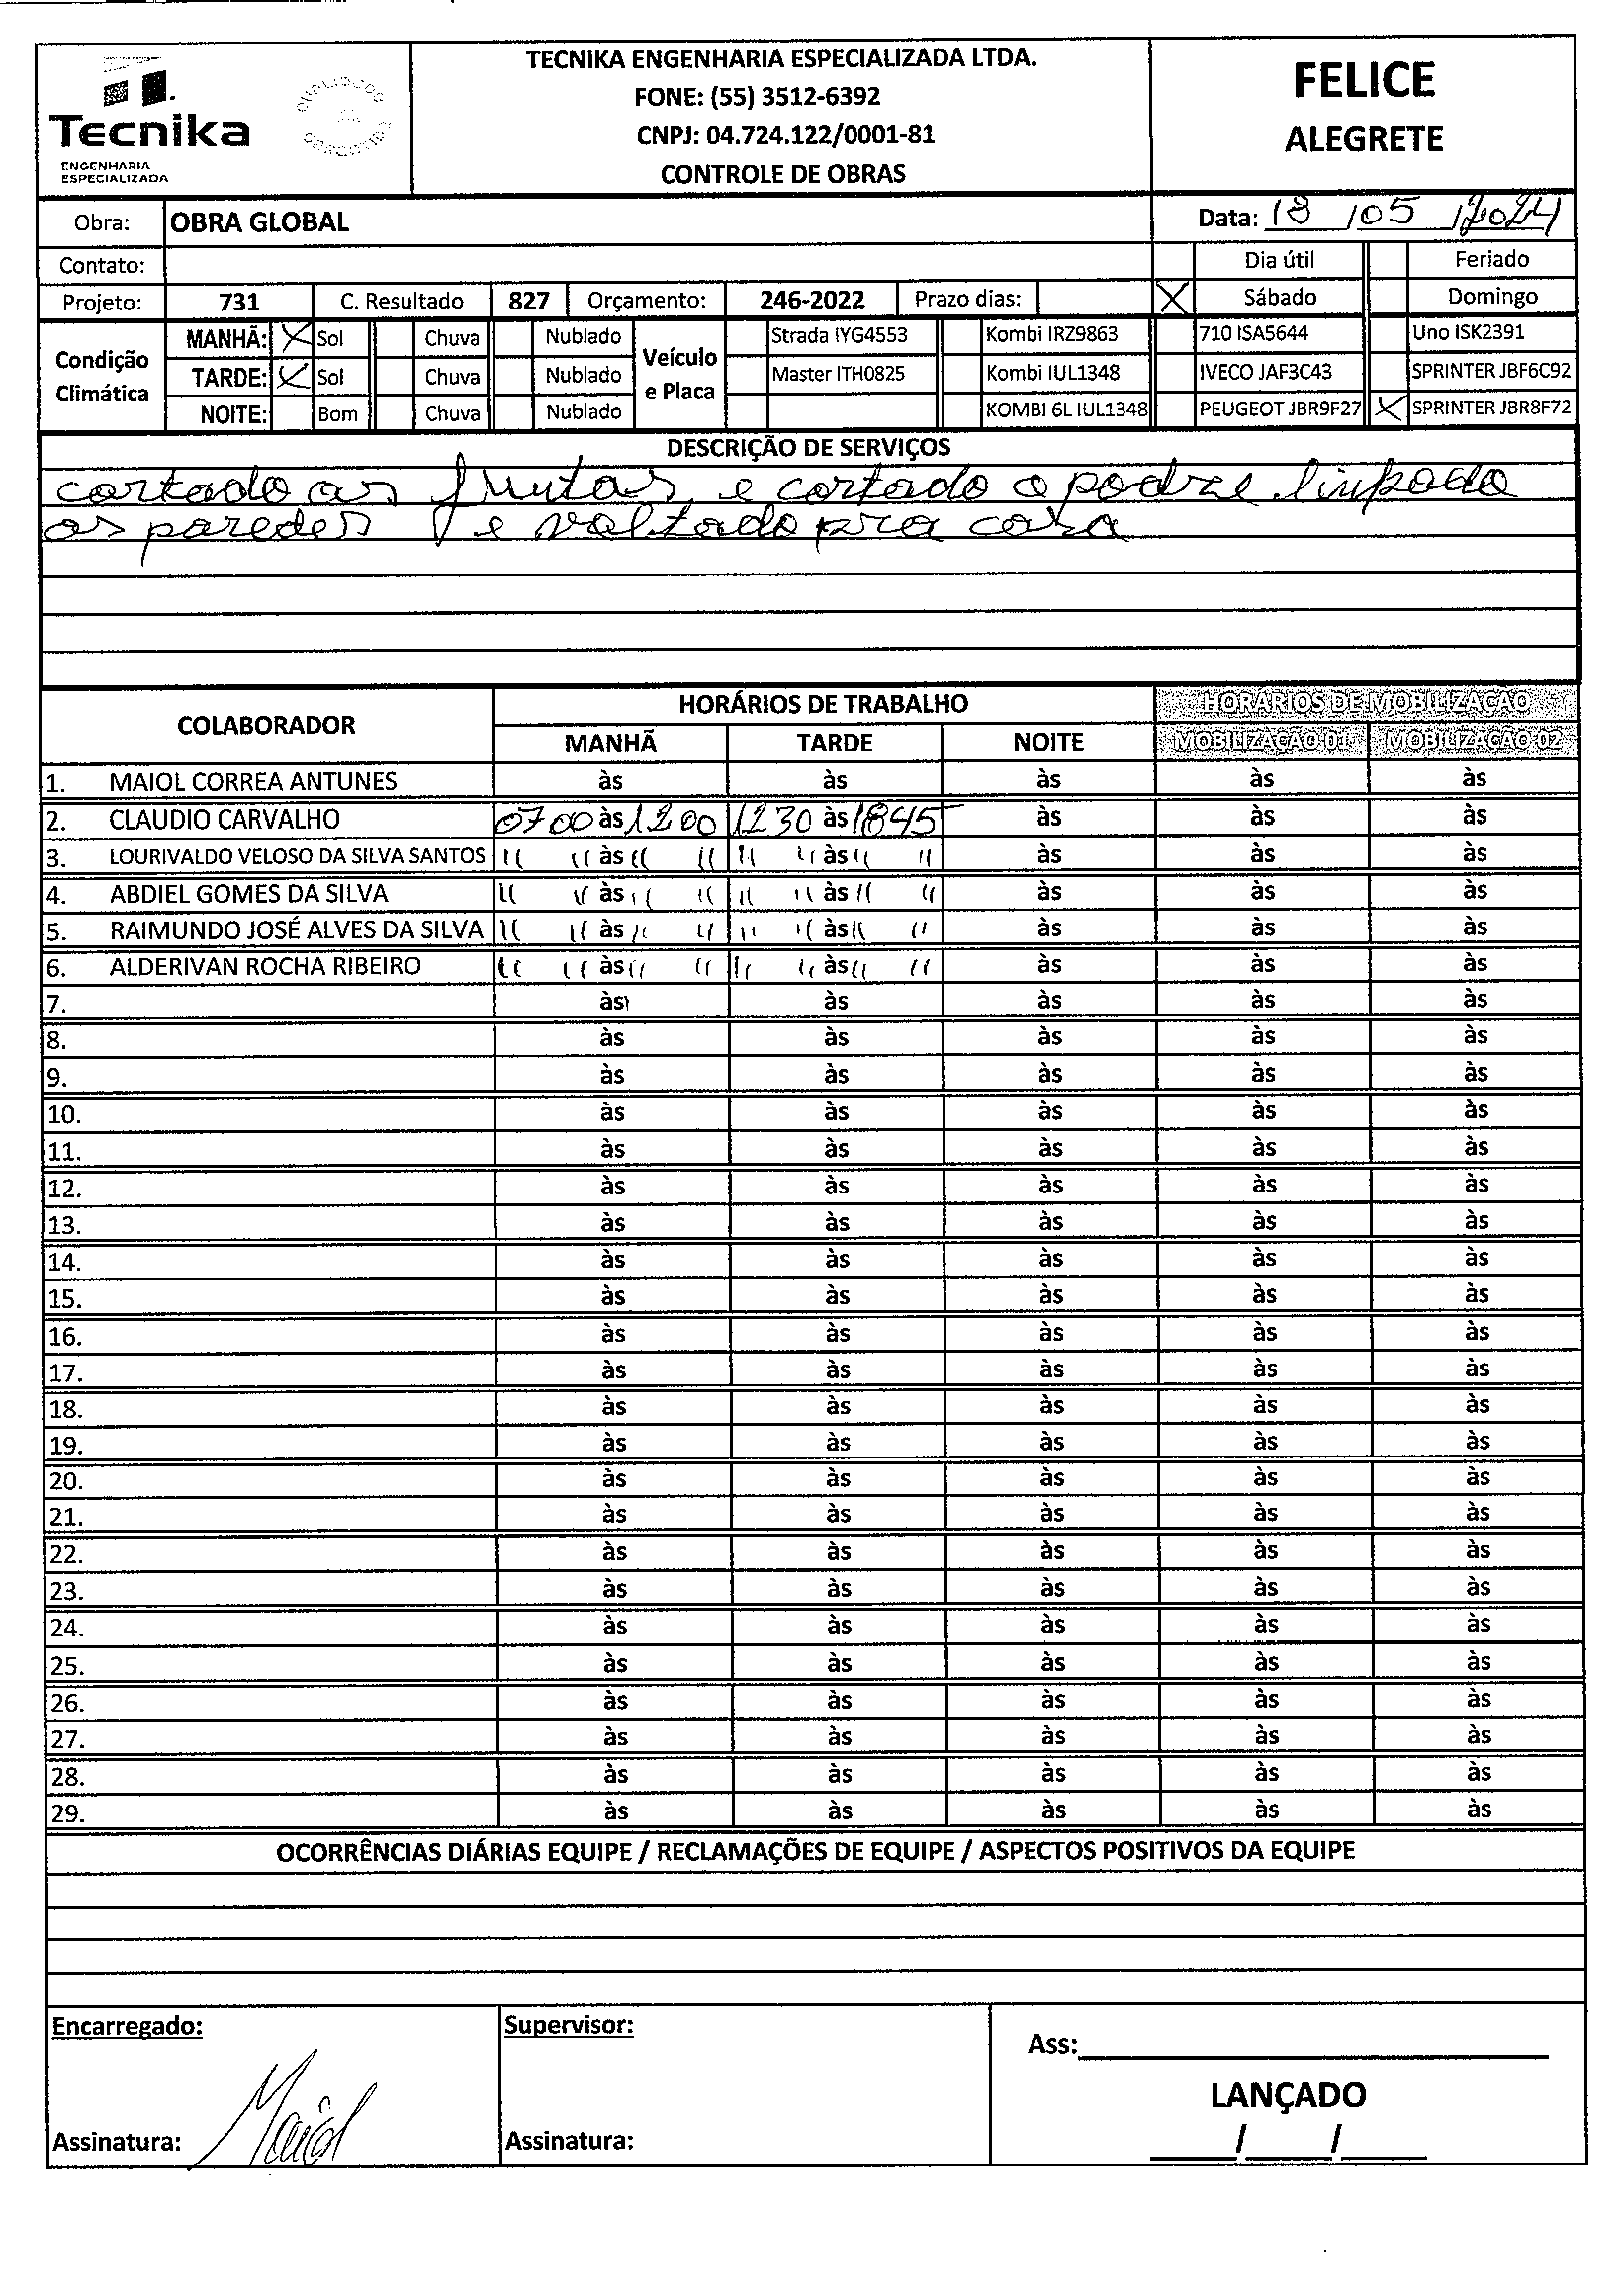 Tecnika
ENGENHARIA
ESPECIALIZADA
TECNIKA ENGENHARIA ESPECIALIZADA LTDA.
FONE: (55) 3512-6392
CNPJ: 04.724.122/0001-81
CONTROLE DE OBRAS
FELICE
ALEGRETE
Obra: OBRA GLOBAL Data: 18 /05 /2024
Contato: Dia útil Feriado
Projeto: 731 C. Resultado 827 Orçamento: 246-2022 Prazo dias: X Sábado Domingo
Condição Climática
MANHÃ: X Sol Chuva Nublado
TARDE: X Sol Chuva Nublado
NOITE: Bom Chuva Nublado
Veículo e Placa
Strada IYG4553 Kombi IRZ9863 710 ISA5644 Uno ISK2391
Master ITH0825 Kombi IUL1348 IVECO JAF3C43 SPRINTER JBF6C92
KOMBI 6L IUL1348 PEUGEOT JBR9F27 X SPRINTER JBR8F72
DESCRIÇÃO DE SERVIÇOS
cortado as frutas, e cortado o podre linpado
as paredes e voltado pra casa
COLABORADOR HORÁRIOS DE TRABALHO HORÁRIOS DE MOBILIZAÇÃO
MANHÃ TARDE NOITE MOBILIZAÇÃO 01 MOBILIZAÇÃO 02
1. MAIOL CORREA ANTUNES às às às às às
2. CLAUDIO CARVALHO 07 00 às 12 00 12 30 às 18 45 às às às
3. LOURIVALDO VELOSO DA SILVA SANTOS " " às " " " " às " " às às às
4. ABDIEL GOMES DA SILVA " " às " " " " às " " às às às
5. RAIMUNDO JOSÉ ALVES DA SILVA " " às " " " " às " " às às às
6. ALDERIVAN ROCHA RIBEIRO " " às " " " " às " " às às às
7. às às às às às
8. às às às às às
9. às às às às às
10. às às às às às
11. às às às às às
12. às às às às às
13. às às às às às
14. às às às às às
15. às às às às às
16. às às às às às
17. às às às às às
18. às às às às às
19. às às às às às
20. às às às às às
21. às às às às às
22. às às às às às
23. às às às às às
24. às às às às às
25. às às às às às
26. às às às às às
27. às às às às às
28. às às às às às
29. às às às às às
OCORRÊNCIAS DIÁRIAS EQUIPE / RECLAMAÇÕES DE EQUIPE / ASPECTOS POSITIVOS DA EQUIPE
Encarregado: Supervisor: Ass:
LANÇADO
Assinatura: Maiol Assinatura: / /